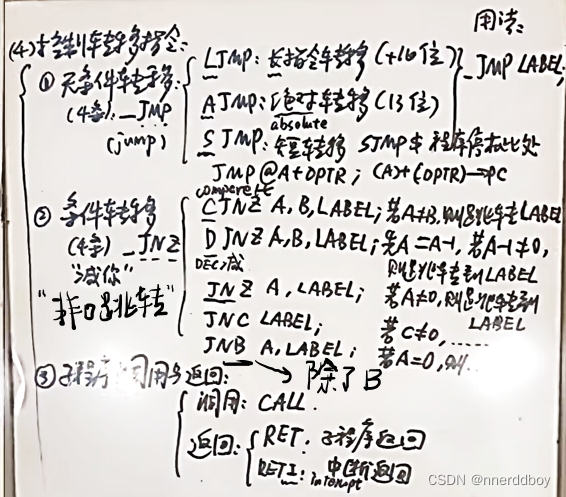 用法:
(4)控制转移指令:
① 无条件转移:
(4条) _JMP
(jump)
LJMP: 长指令转移 (+16位)
AJMP: 绝对转移 (13位)
absolute
_JMP LABEL;
SJMP: 短转移 SJMP $ 程序停在此处
JMP @A+DPTR; (A)+(DPTR)→PC
② 条件转移
(4条) _JNZ
"减你"
"非0跳转"
compare比
CJNZ A,B,LABEL; 若A≠B,则跳转LABEL
DJNZ A,B,LABEL; 先A=A-1,若A-1≠0,
DEC,减
则跳转到LABEL
JNZ A,LABEL; 若A≠0,则跳转到
LABEL
JNC LABEL; 若C≠0,......
JNB A,LABEL; 若A=0,则...
→ 除了B
③ 子程序调用与返回:
调用: CALL.
返回: RET. 子程序返回
RETI: 中断返回
interrupt
CSDN @nnerddboy